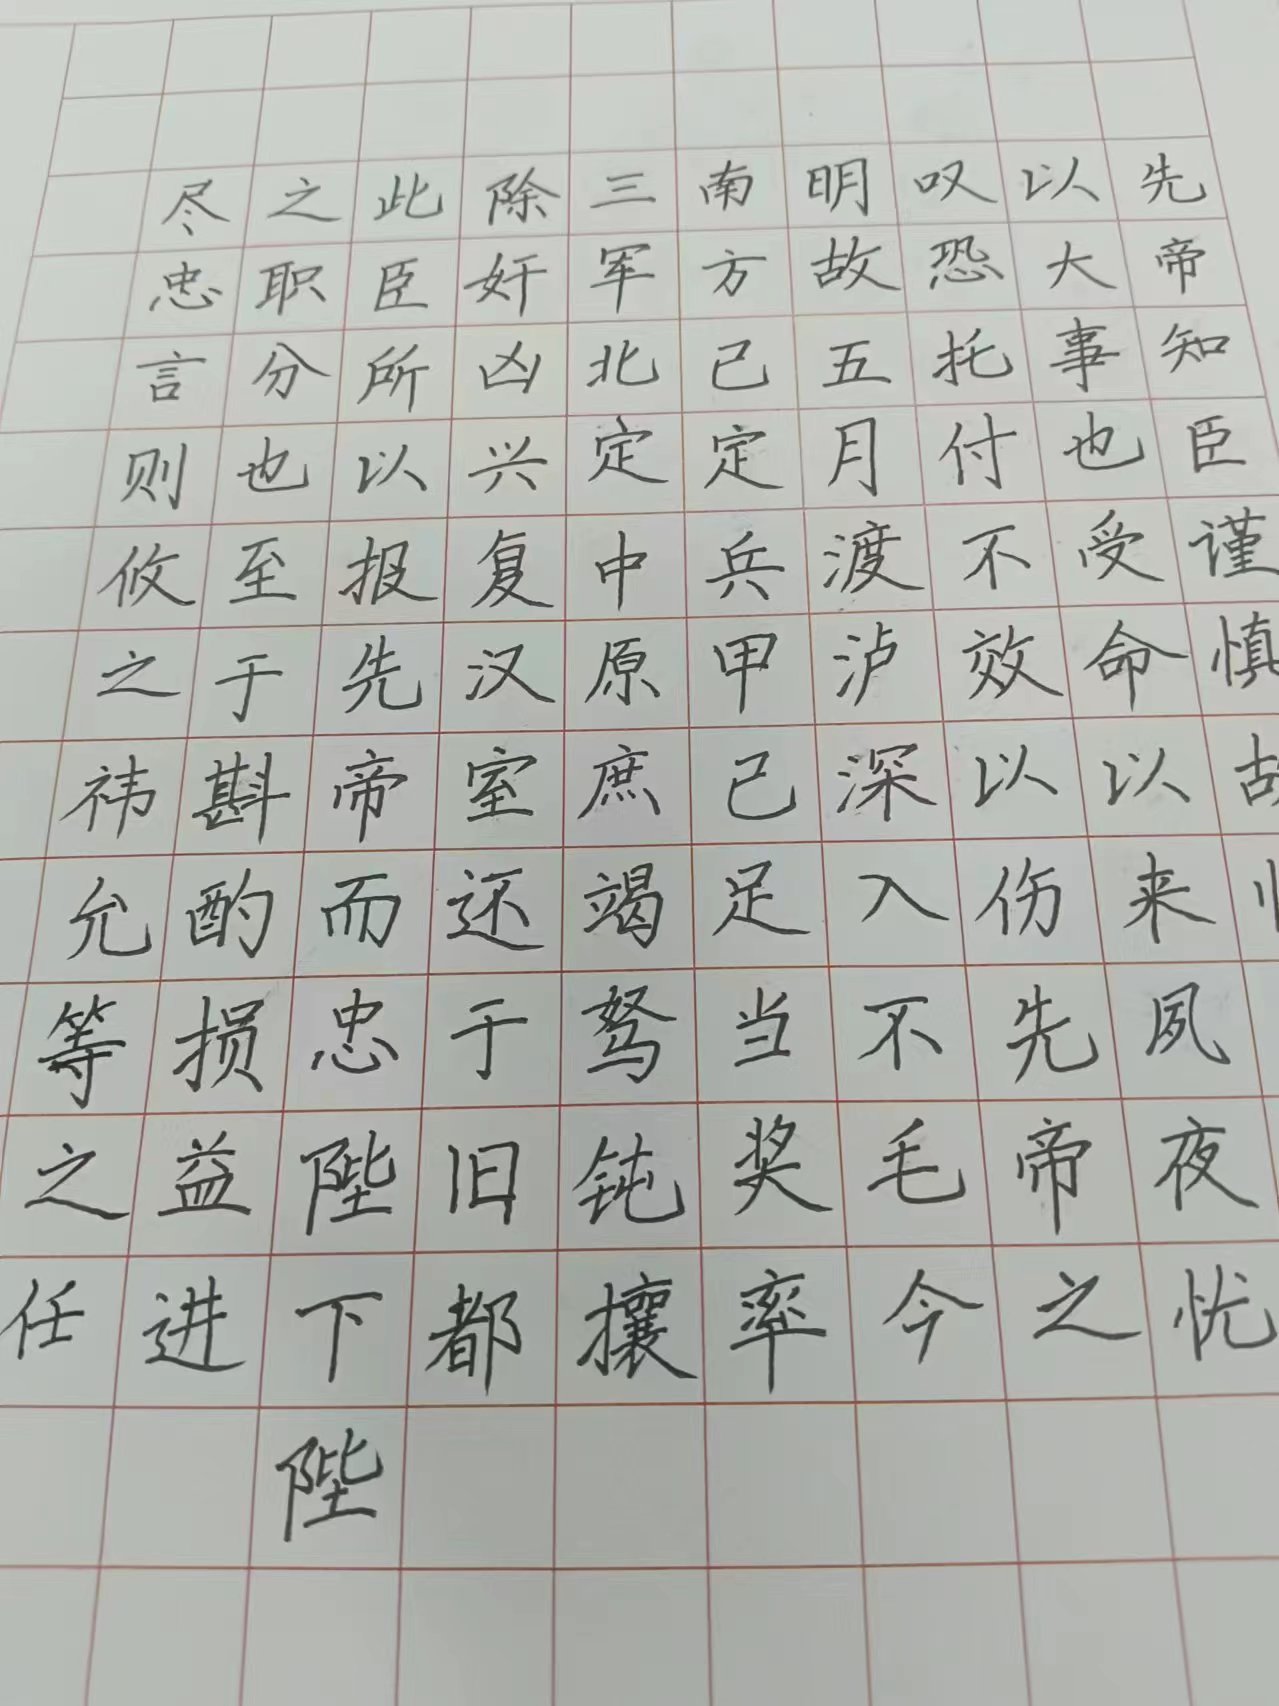 先帝知臣谨慎故
以大事也受命以来夙夜忧
叹恐托付不效以伤先帝之
明故五月渡泸深入不毛今
南方已定兵甲已足当奖率
三军北定中原庶竭驽钝攘
除奸凶兴复汉室还于旧都
此臣所以报先帝而忠陛下陛
之职分也至于斟酌损益进
尽忠言则攸之祎允等之任